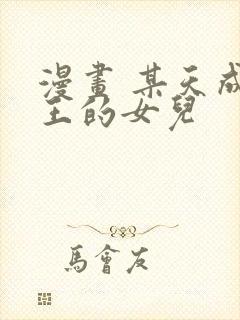 漫畫 某天成
王的女兒
馬會友